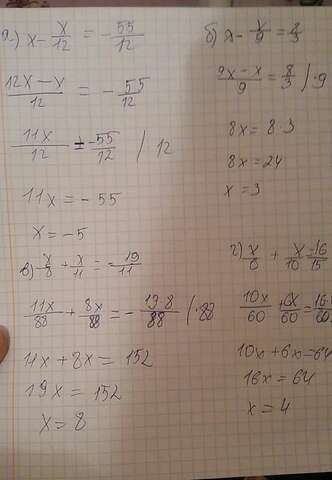 а.) x - x/12 = - 55/12
12x - x / 12 = - 55/12
11x/12 = -55/12 / 12
11x = - 55
x = -5
б) x - x/9 = 8/3
9x - x / 9 = 8/3 / ·9
8x = 8·3
8x = 24
x = 3
в) x/8 + x/11 = - 19/11
11x/88 + 8x/88 = - 19·8/88 / ·88
11x + 8x = 152
19x = 152
x = 8
г) x/6 + x/10 = 16/15
10x/60 + 6x/60 = 16/15
10x + 6x = 64
16x = 64
x = 4